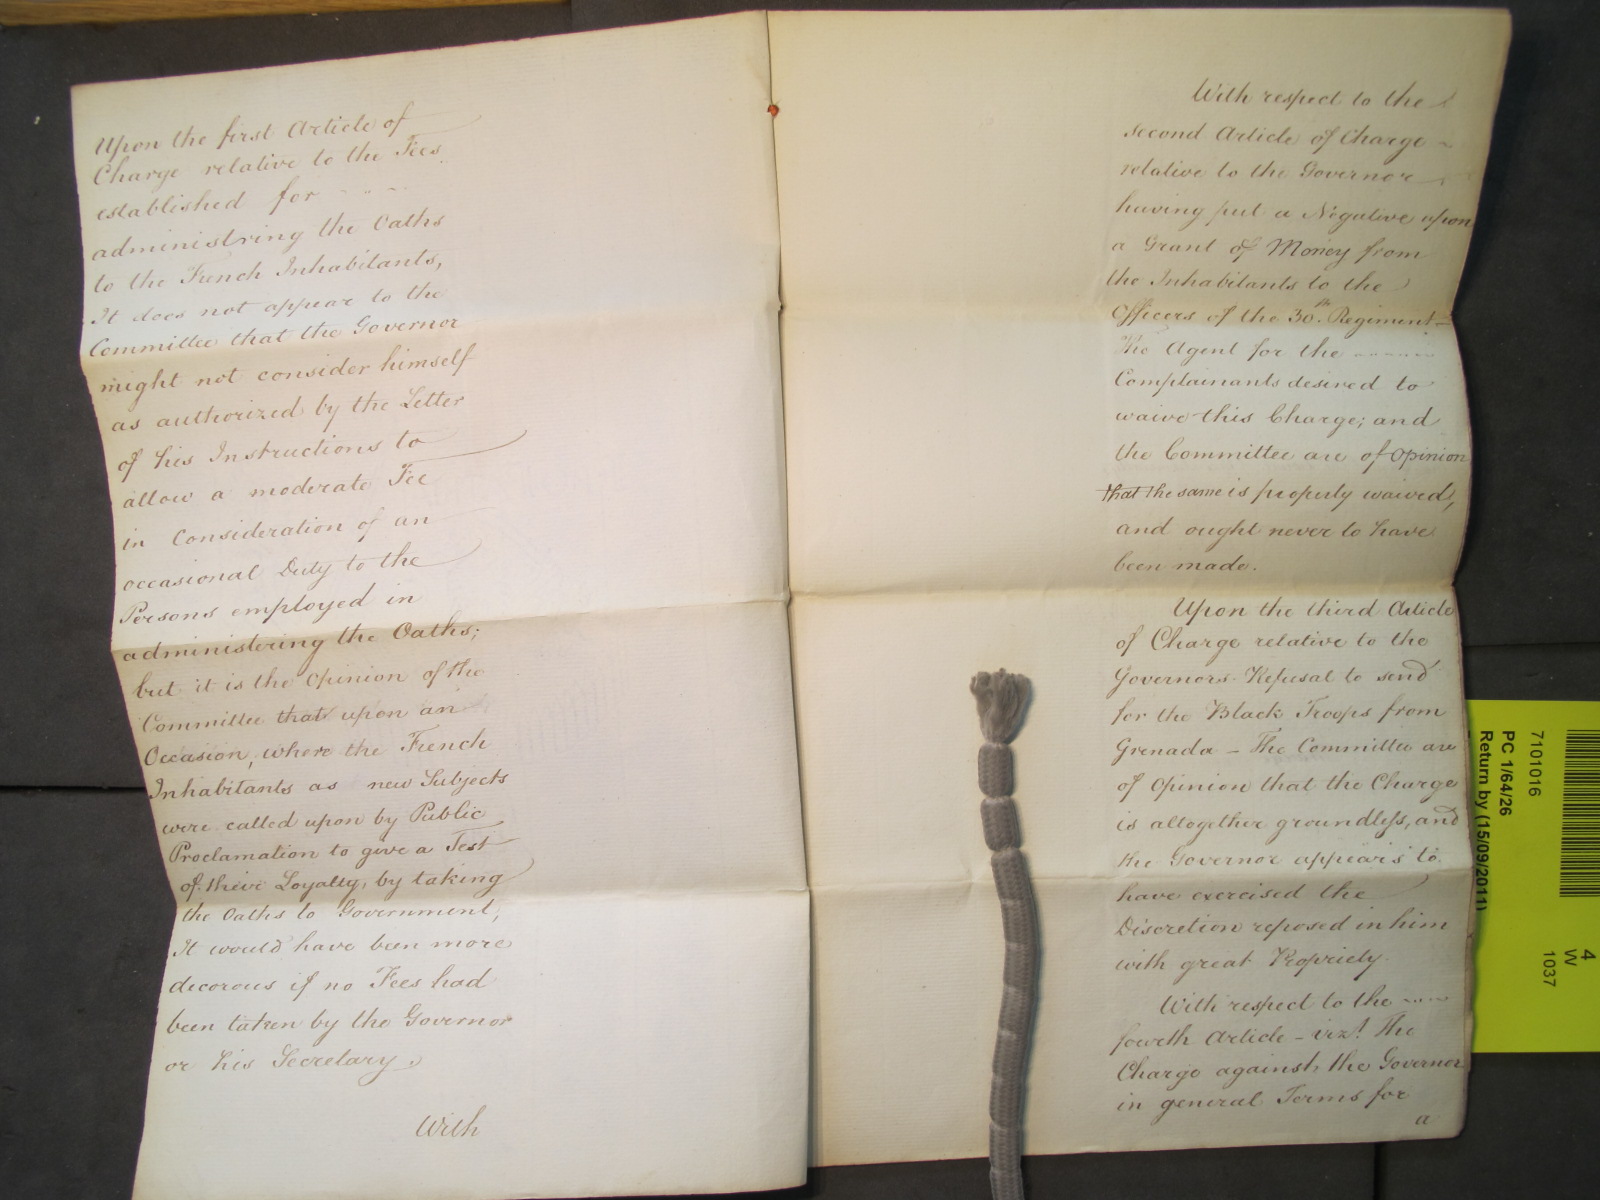 Upon the first Article of
Charge relative to the Fees
established for
administring the Oaths
to the French Inhabitants,
It does not appear to the
Committee that the Governor
might not consider himself
as authorized by the Letter
of his Instructions to
allow a moderate Fee
in Consideration of an
occasional Duty to the
Persons employed in
administering the Oaths;
but it is the Opinion of the
Committee that upon an
Occasion, where the French
Inhabitants as new Subjects
were called upon by Public
Proclamation to give a Test
of their Loyalty, by taking
the Oaths to Government,
It would have been more
decorous if no Fees had
been taken by the Governor
or his Secretary.
With
With respect to the
second Article of Charge
relative to the Governor
having put a Negative upon
a Grant of Money from
the Inhabitants to the
Officers of the 30th. Regiment—
The Agent for the
Complainants desired to
waive this Charge; and
the Committee are of Opinion
that the same is properly waived,
and ought never to have
been made.
Upon the third Article
of Charge relative to the
Governors Refusal to send
for the Black Troops from
Grenada — The Committee are
of Opinion that the Charge
is altogether groundless, and
the Governor appears to
have exercised the
Discretion reposed in him
with great Propriety.
With respect to the
fourth Article — vizt. The
Charge against, the Governor
in general Terms for
a
7101016
PC 1/64/26
Return by (15/09/2011)
4
W
1037